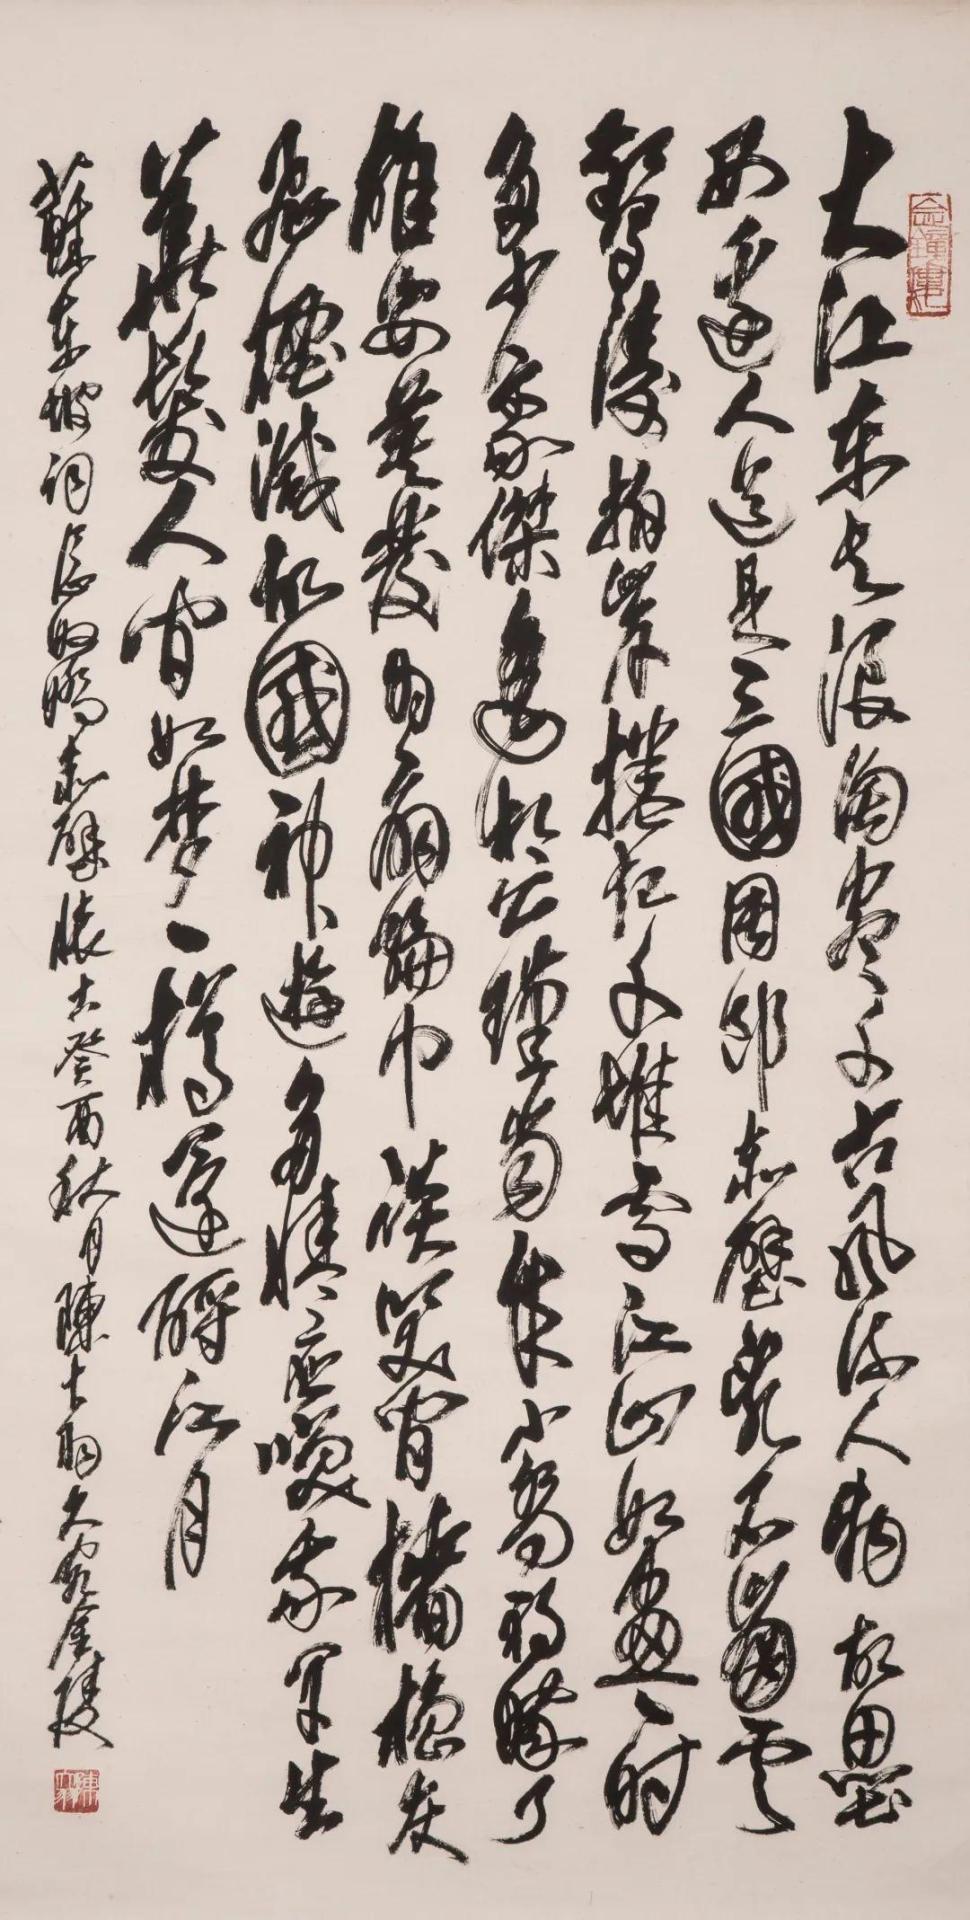 大江東去浪淘盡千古風流人物故壘
西邊人道是三國周郎赤壁亂石崩雲
驚濤拍岸捲起千堆雪江山如畫一時
多少豪傑遙想公瑾當年小喬初嫁了
雄姿英發羽扇綸巾談笑間檣櫓灰
飛煙滅故國神遊多情應笑我早生
華髮人間如夢一樽還酹江月
蘇東坡詞念奴嬌赤壁懷古癸酉秋月陳大羽久客金陵